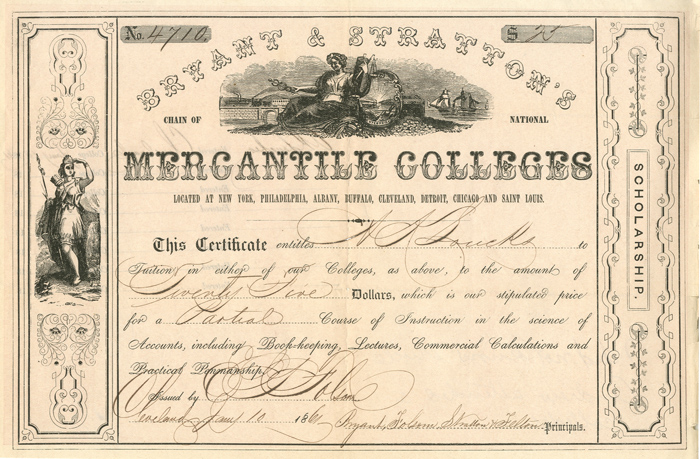 No. 4710.
$ 25
BRYANT & STRATTON'S
CHAIN OF NATIONAL
MERCANTILE COLLEGES
LOCATED AT NEW YORK, PHILADELPHIA, ALBANY, BUFFALO, CLEVELAND, DETROIT, CHICAGO AND SAINT LOUIS.
This Certificate entitles to
Tuition in either of our Colleges, as above, to the amount of
Twenty Five Dollars, which is our stipulated price
for a Partial Course of Instruction in the science of
Accounts, including Book-keeping, Lectures, Commercial Calculations and
Practical Penmanship.
Issued by
Cleveland Jany 10 1861 Bryant, Folsom, Stratton & Felton Principals.
SCHOLARSHIP.